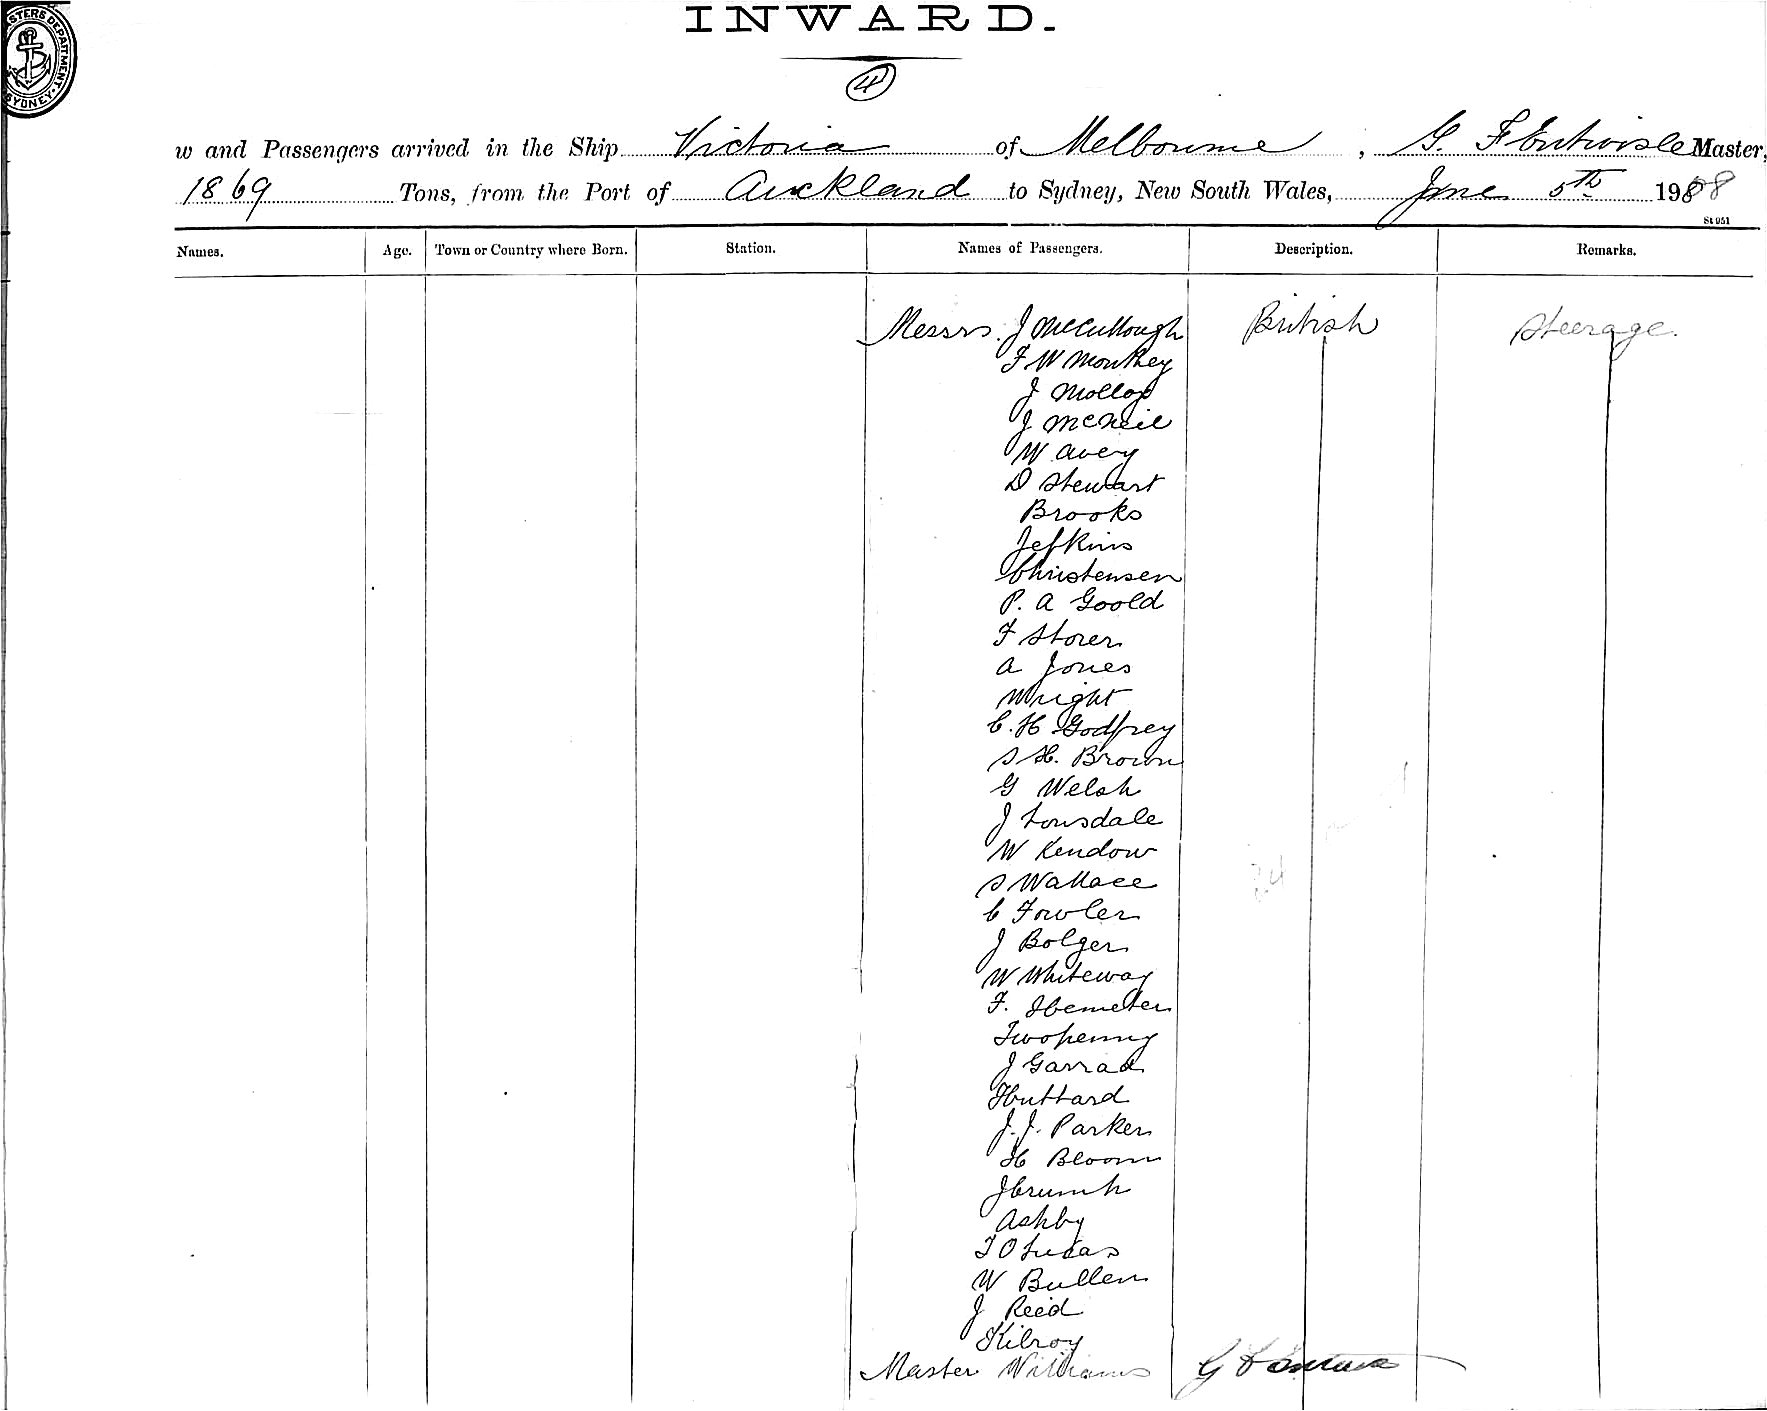 INWARD.
4
MASTERS DEPARTMENT. SYDNEY.
w and Passengers arrived in the Ship Victoria of Melbourne, G. F Entwisle Master,
1869 Tons, from the Port of Auckland to Sydney, New South Wales, June 5th 1908
St 951
Names. Age. Town or Country where Born. Station. Names of Passengers. Description. Remarks.
Messrs. J McCullough British Steerage.
F W
J Molloy
J McNeil
W Avery
D Stewart
Brooks
Jefkins
Christensen
P. A Goold
F Storer
A Jones
Wright
C. H Godfrey
S H. Brown
G Welsh
J Lonsdale
W Kendow
S Wallace
C Fowler
J Bolger
W Whiteway
F.
Twopenny
J Garrad
J. J. Parker
H Bloom
Ashby
T O Lucas
W Bullen
J Reid
Kilroy
Master Williams